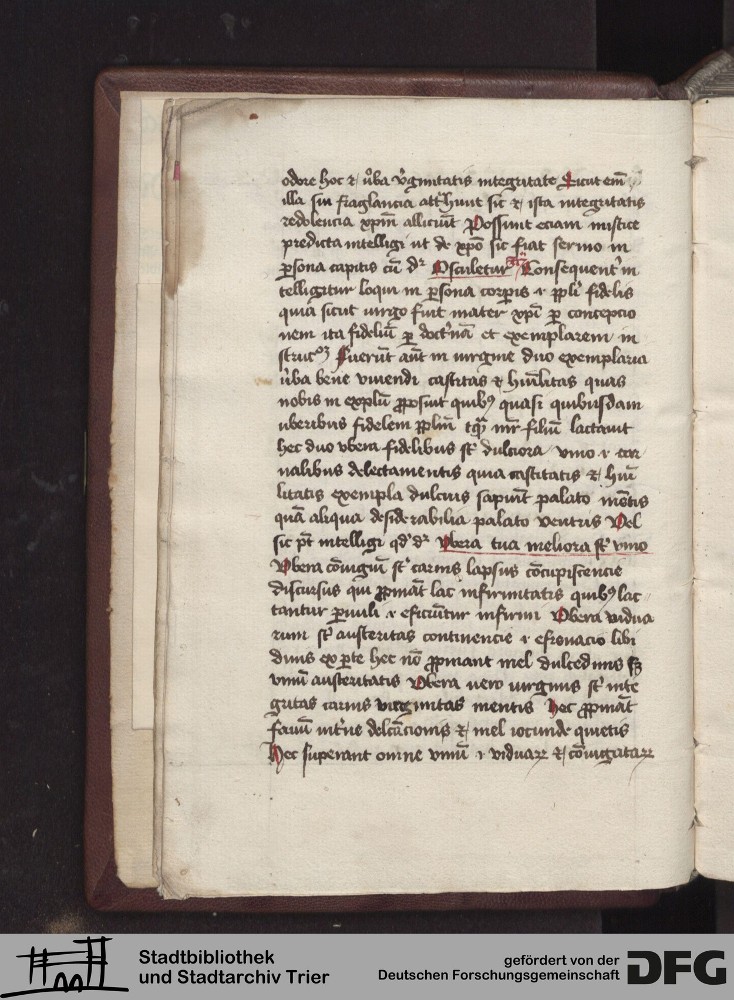 odore hoc ⁊ ůba v̉ginitatis integritate Sicut em̄
illa sui fraglancia att̉hunt sic ⁊ ista integritatis
redolencia xp̄m alliciūt Possunt eciam mistice
predicta intelligi ut de xpō sic fiat sermo in
ꝑsona capitis cū dr̄ Osculetur Consequent̉ in
telligitur loqui in ꝑsona corporis ⁊ ppl̄i fidelis
quia sicut uirgo fuit mater xp̄i ꝑ concepcio
nem ita fideliū ꝑ doct̉nā et exemplarem in
Fuerūt aūt in uirgine duo exemplaria
ůba bene viuendi castitas ⁊ hūilitas quas
nobis in explū ꝓposuit quibꝰ quasi quibusdam
uberibus fidelem ppl̄m tꝙ̄ mr̄ filiū lactauit
hec duo vbera fidelibus st̄ dulciora vino ⁊ car
nalibus delectamentis quia castitatis ⁊ hūi
litatis exempla dulcius sapiūt palato mētis
quā aliqua desiderabilia palato ventris Vel
sic pt̄ intelligi qd̓ dr̄ Vbera tua meliora st̄ vino
Vbera cōiugiū st̄ carnis lapsus cōcupiscencie
discursus qui ꝓpināt lac infirmitatis quibꝰ lac
tantur ꝑuuli ⁊ efficiūtur infirmi Vbera vidua
rum st̄ austeritas continencie ⁊ efrenacio libi
dinis ex ꝑte hec nō ꝓpinant mel dulcedinis sꝫ
vinū austeritatis Vbera uero uirginis st̄ inte
gritas carnis virginitas mentis Hec ꝓpināt
fauū int̉ne delc̄acionis ⁊ mel iocunde quietis
Hec superant omne vinū ⁊ viduaꝝ ⁊ cōiugataꝝ
Stadtbibliothek
und Stadtarchiv Trier
gefördert von der
Deutschen Forschungsgemeinschaft
DFG